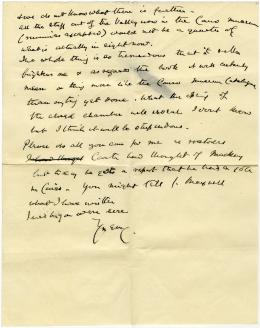 we do not know what there is further -
all the stuff out of the Valley now in the Cairo museum
(mummies excepted) would not be a quarter of
what is actually in sight now.
The whole thing is so tremendous that it rather
frightens me & as regards the book it will certainly
mean a thing more like the Cairo Museum Catalogue
than anything yet done. What the opening of
the closed chamber will reveal I don't know
but I think it will be stupendous.
Please do all you can for me re restorers
Carter had thought of Mackay
but to-day he gets a report that he has a job
in Cairo. You might tell J. Maxwell
what I have written
I wish you were here
Yrs ever